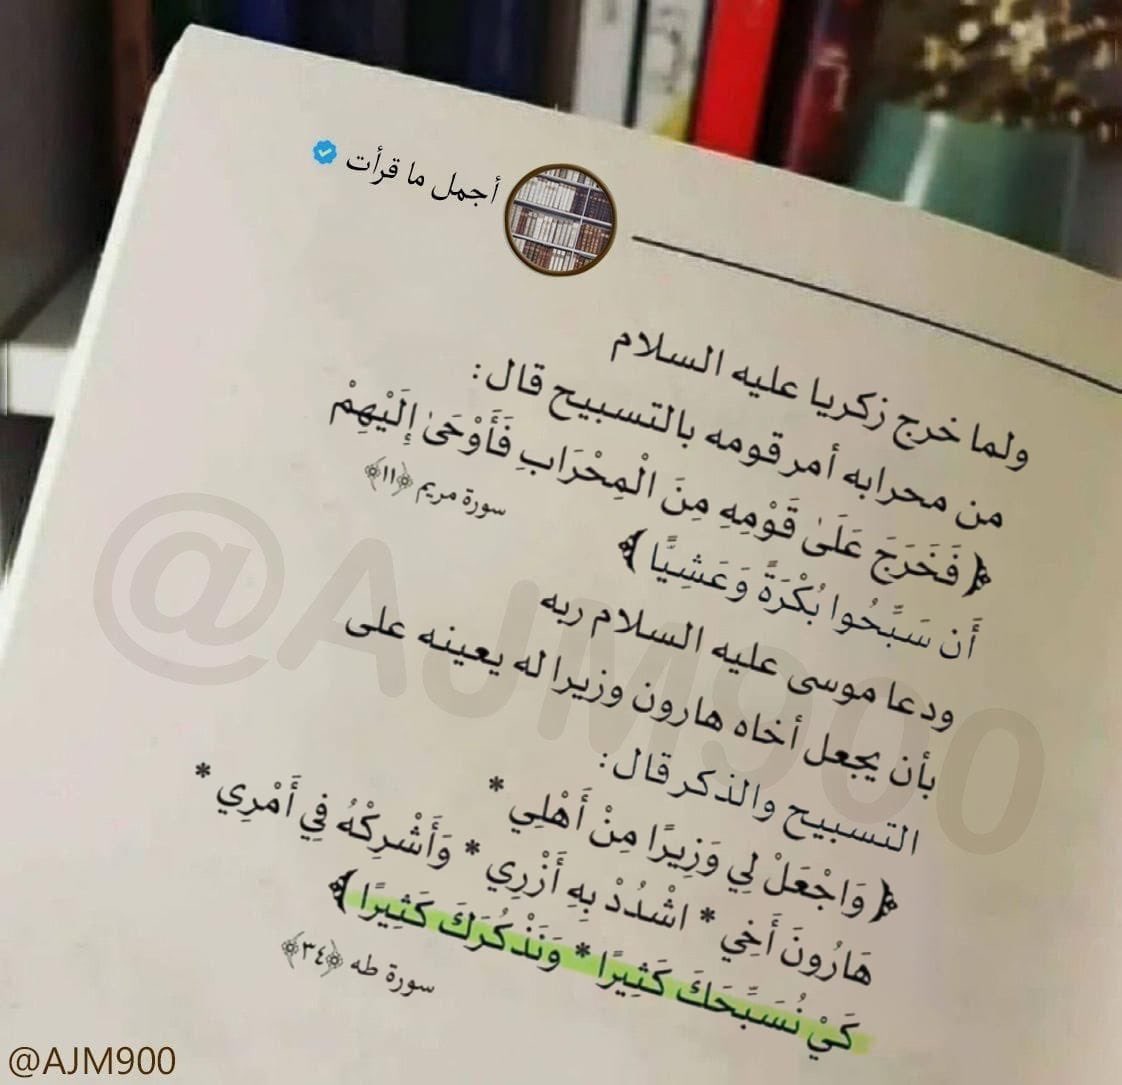 أجمل ما قرأت
ولما خرج زكريا عليه السلام
من محرابه أمر قومه بالتسبيح قال:
﴿فَخَرَجَ عَلَىٰ قَوْمِهِ مِنَ الْمِحْرَابِ فَأَوْحَىٰ إِلَيْهِمْ
أَن سَبِّحُوا بُكْرَةً وَعَشِيًّا﴾ سورة مريم ﴿١١﴾
ودعا موسى عليه السلام ربه
بأن يجعل أخاه هارون وزيرا له يعينه على
التسبيح والذكر قال:
﴿وَاجْعَلْ لِي وَزِيرًا مِنْ أَهْلِي *
هَارُونَ أَخِي * اشْدُدْ بِهِ أَزْرِي * وَأَشْرِكْهُ فِي أَمْرِي *
كَيْ نُسَبِّحَكَ كَثِيرًا * وَنَذْكُرَكَ كَثِيرًا﴾
سورة طه ﴿٣٤﴾
@AJM900
@AJM900